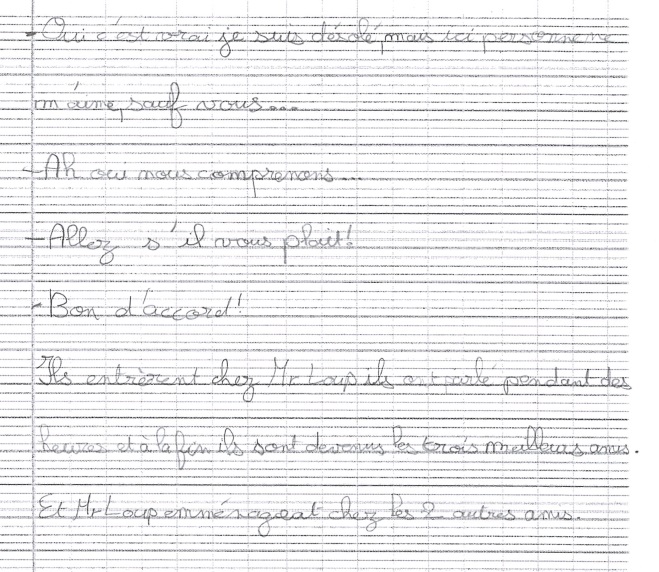 - Oui c'est vrai je suis désolé mais ici personne ne
m'aime, sauf vous...
- Ah oui nous comprenons...
- Allez s'il vous plait!
- Bon d'accord!
Ils entrèrent chez Mr Loup ils ont parlé pendant des
heures et à la fin ils sont devenus les trois meilleurs amis.
Et Mr Loup emménageat chez les 2 autres amis.